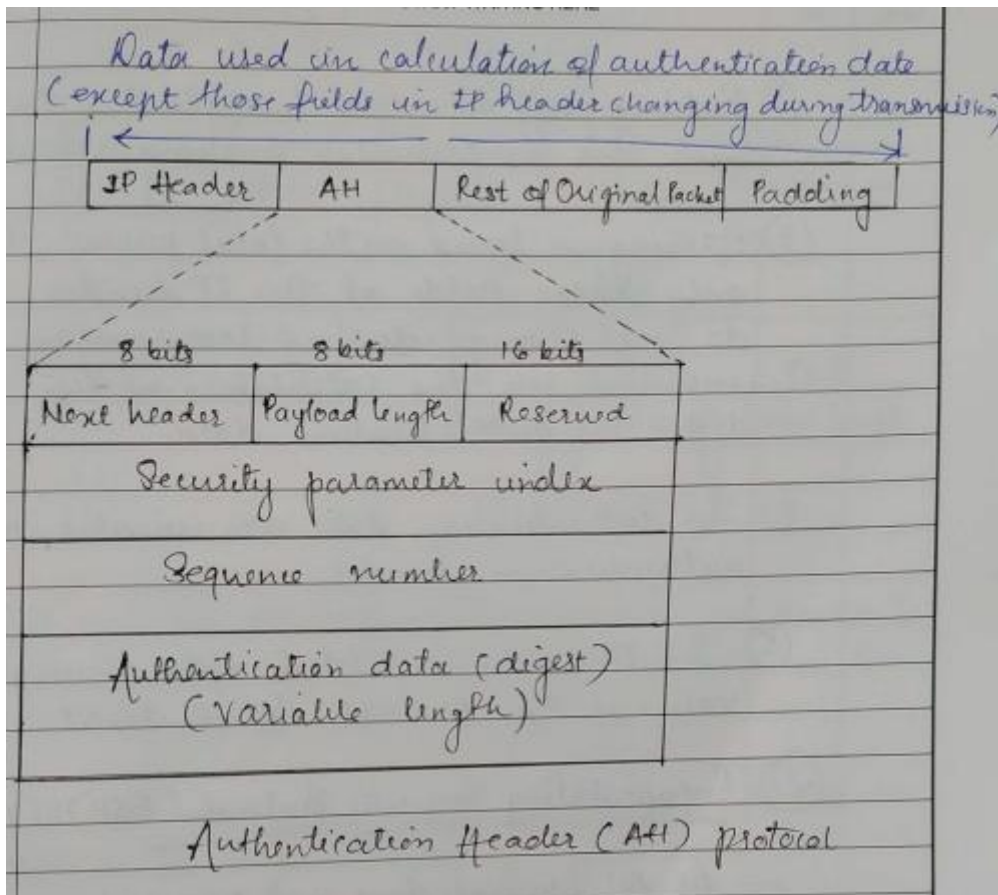 Data used in calculation of authentication date
(except those fields in IP header changing during transmission)
IP Header AH Rest of Original Packet Padding
8 bits 8 bits 16 bits
Next header Payload length Reserved
Security parameter index
Sequence number
Authentication data (digest)
(variable length)
Authentication Header (AH) protocol